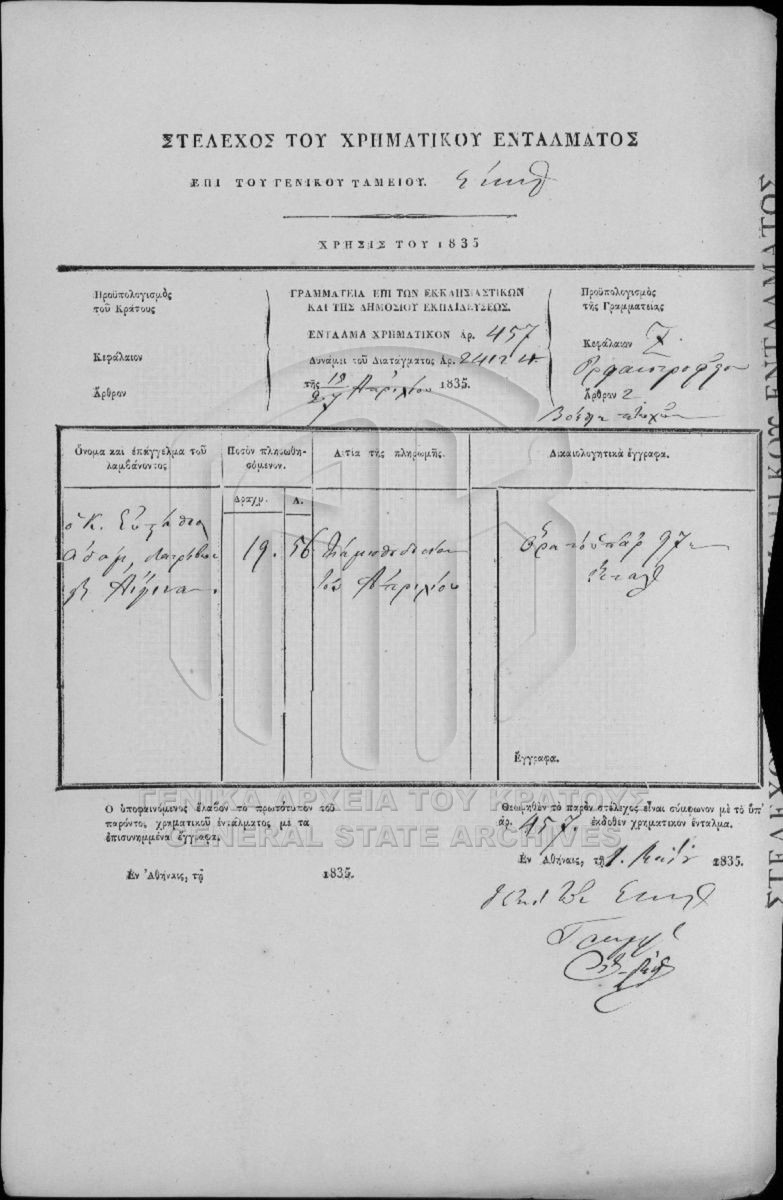 ΣΤΕΛΕΧΟΣ ΤΟΥ ΧΡΗΜΑΤΙΚΟΥ ΕΝΤΑΛΜΑΤΟΣ
ΕΠΙ ΤΟΥ ΓΕΝΙΚΟΥ ΤΑΜΕΙΟΥ.
ΧΡΗΣΙΣ ΤΟΥ 1835
Προϋπολογισμὸς
τοῦ Κράτους
Κεφάλαιον
Ἄρθρον
ΓΡΑΜΜΑΤΕΙΑ ΕΠΙ ΤΩΝ ΕΚΚΛΗΣΙΑΣΤΙΚΩΝ
ΚΑΙ ΤΗΣ ΔΗΜΟΣΙΟΥ ΕΚΠΑΙΔΕΥΣΕΩΣ.
ΕΝΤΑΛΜΑ ΧΡΗΜΑΤΙΚΟΝ Αρ. 457
Δυνάμει τοῦ Διατάγματος Αρ.
τῆς Ἀπριλίου 1835.
Προϋπολογισμὸς
τῆς Γραμματείας
Κεφάλαιον Ζ.
Ἄρθρον 2
Ὄνομα καὶ ἐπάγγελμα τοῦ
λαμβάνοντος
Ποσὸν πληρωθη-
σόμενον.
Αἰτία τῆς πληρωμῆς.
Δικαιολογητικὰ ἔγγραφα.
Δραχμ. Λ.
ὁ Κ.
19. 56
τοῦ Ἀπριλίου
Ἔγγραφα.
Ο ὑποφαινόμενος ἔλαβον τὸ πρωτότυπον τοῦ
παρόντος χρηματικοῦ ἐντάλματος μὲ τὰ
ἐπισυνημμένα ἔγγραφα.
Εν Ἀθήναις, τῇ 1835.
Θεωρηθὲν τὸ παρὸν στέλεχος εἶναι σύμφωνον μὲ τὸ ὑπ'
ἀρ. 457. ἐκδοθὲν χρηματικὸν ἔνταλμα.
Εν Ἀθήναις, τῇ 1835.
ΓΕΝΙΚΑ ΑΡΧΕΙΑ ΤΟΥ ΚΡΑΤΟΥΣ
GENERAL STATE ARCHIVES